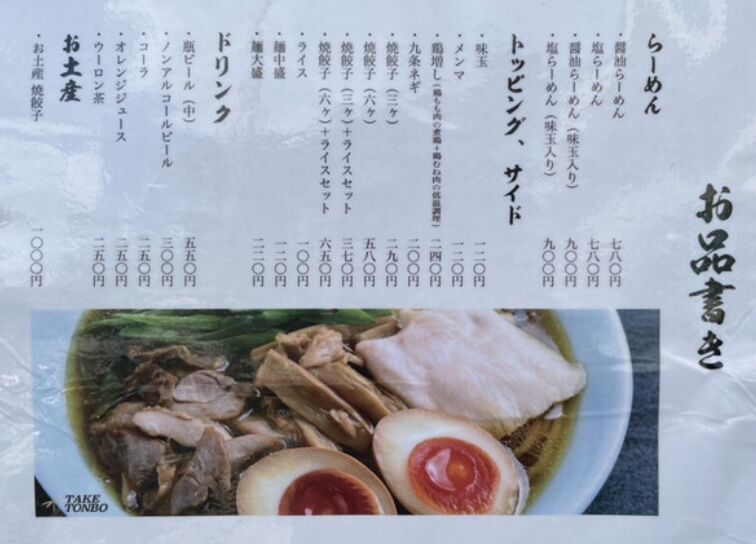 お品書き
らーめん
・醤油らーめん 七八〇円
・塩らーめん 七八〇円
・醤油らーめん(味玉入り) 九〇〇円
・塩らーめん(味玉入り) 九〇〇円
トッピング、サイド
・味玉 一二〇円
・メンマ 一二〇円
・鶏増し(鶏もも肉の煮鶏+鶏むね肉の低温調理) 二四〇円
・九条ネギ 二〇〇円
・焼餃子(三ヶ) 二九〇円
・焼餃子(六ヶ) 五八〇円
・焼餃子(三ヶ)+ライスセット 三七〇円
・焼餃子(六ヶ)+ライスセット 六五〇円
・ライス 一〇〇円
・麺中盛 一二〇円
・麺大盛 二二〇円
ドリンク
・瓶ビール(中) 五五〇円
・ノンアルコールビール 三〇〇円
・コーラ 二五〇円
・オレンジジュース 二五〇円
・ウーロン茶 二五〇円
お土産
・お土産 焼餃子 一〇〇〇円
TAKE
TONBO